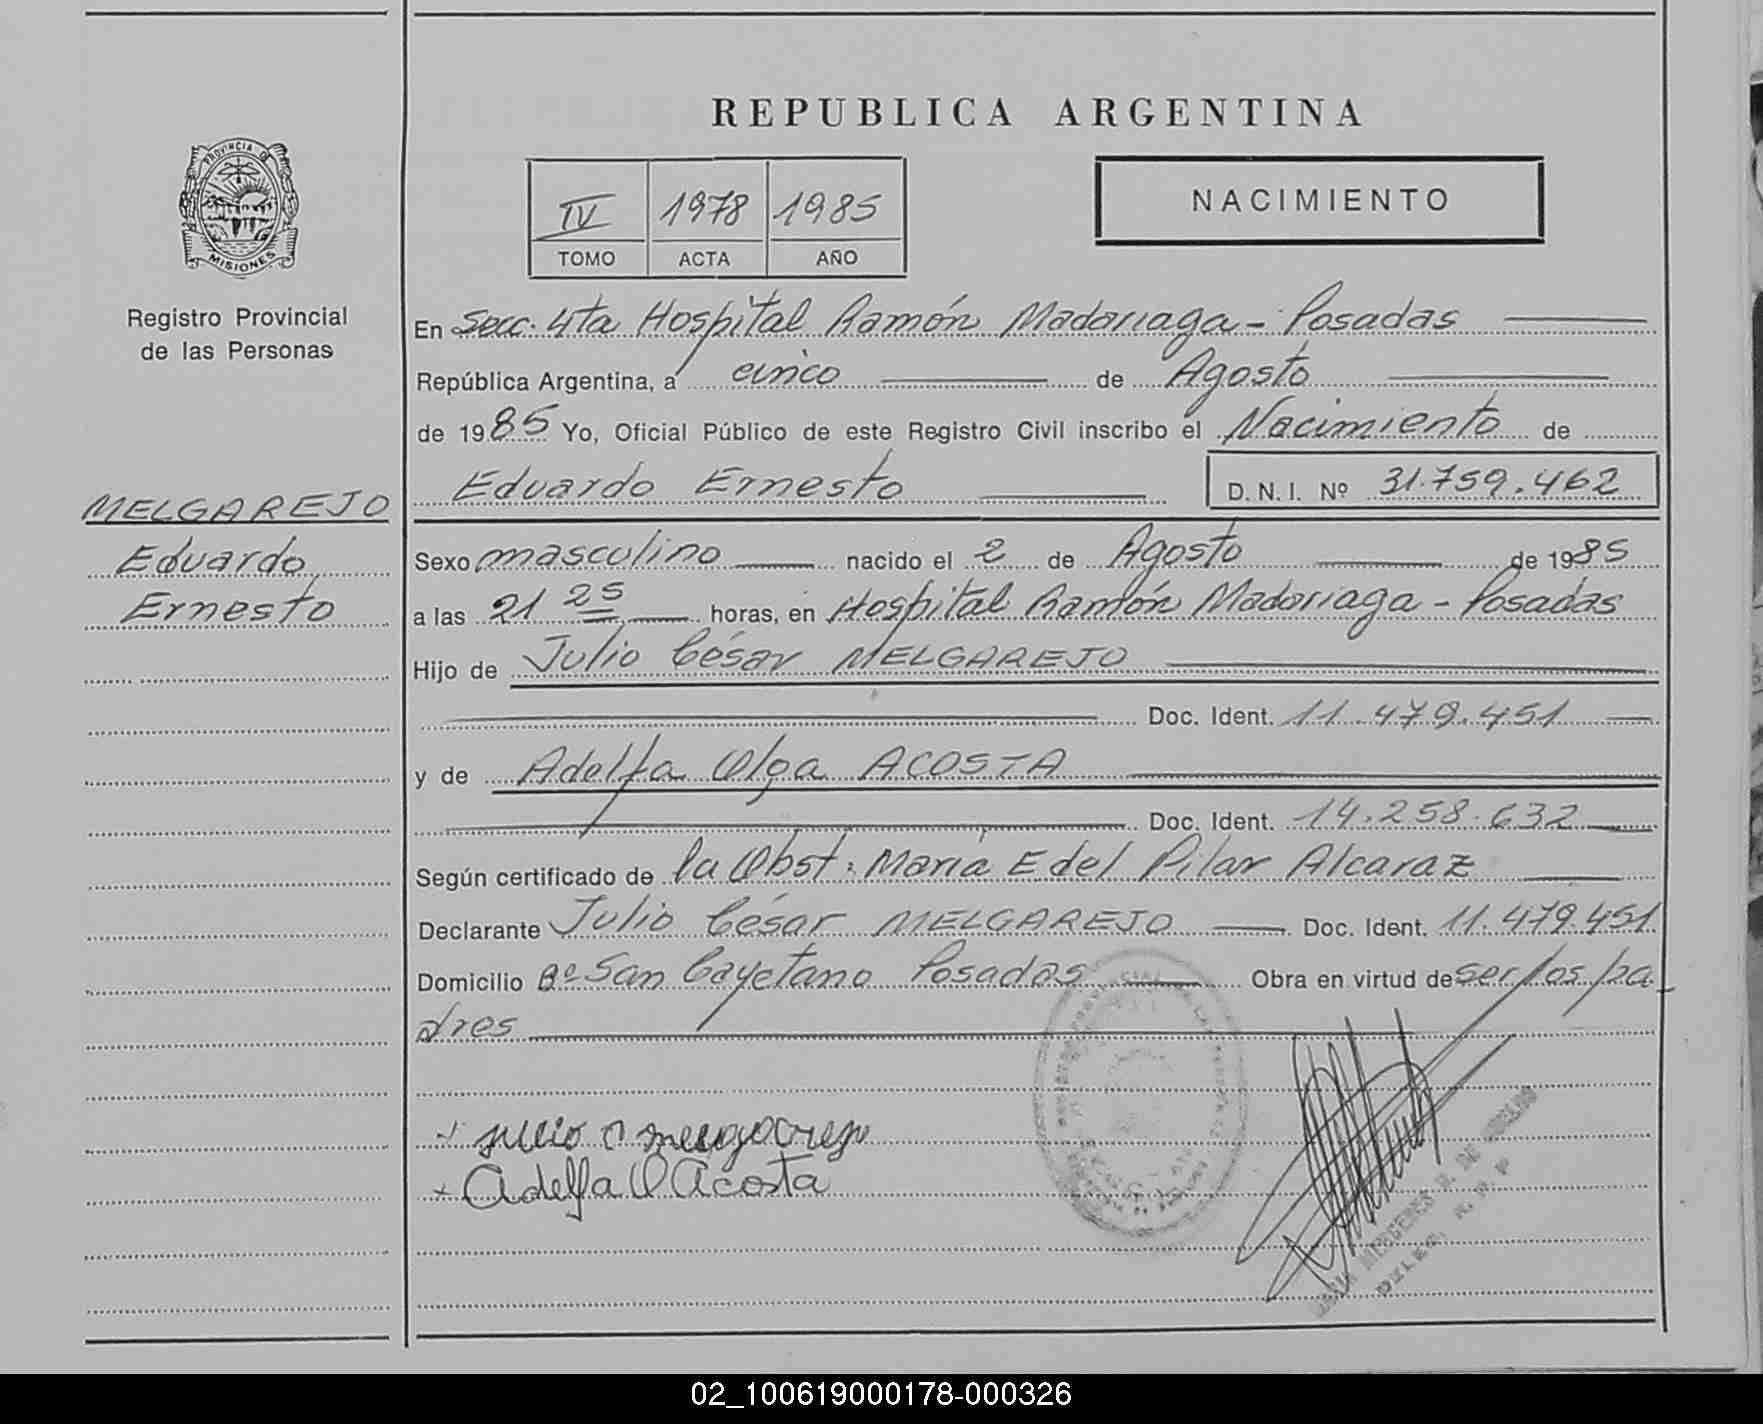 REPUBLICA ARGENTINA
PROVINCIA DE
MISIONES
Registro Provincial
de las Personas
IV 1978 1985
TOMO ACTA AÑO
NACIMIENTO
En Secc. 4ta Hospital Ramón Madariaga - Posadas
República Argentina, a cinco de Agosto
de 1985 Yo, Oficial Público de este Registro Civil inscribo el Nacimiento de
Eduardo Ernesto D.N.I. Nº 31.759.462
MELGAREJO
Eduardo
Ernesto
Sexo masculino nacido el 2 de Agosto de 1985
a las 21 25 horas, en Hospital Ramón Madariaga - Posadas
Hijo de Julio César MELGAREJO
Doc. Ident. 11.479.451
y de Adelfa Olga ACOSTA
Doc. Ident. 14.258.632
Según certificado de la Obst: María E del Pilar Alcaraz
Declarante Julio César MELGAREJO Doc. Ident. 11.479.451
Domicilio Bº San Cayetano Posadas Obra en virtud de ser los pa
dres
+ Julio C Melgarejo
+ Adelfa O Acosta
02_100619000178-000326